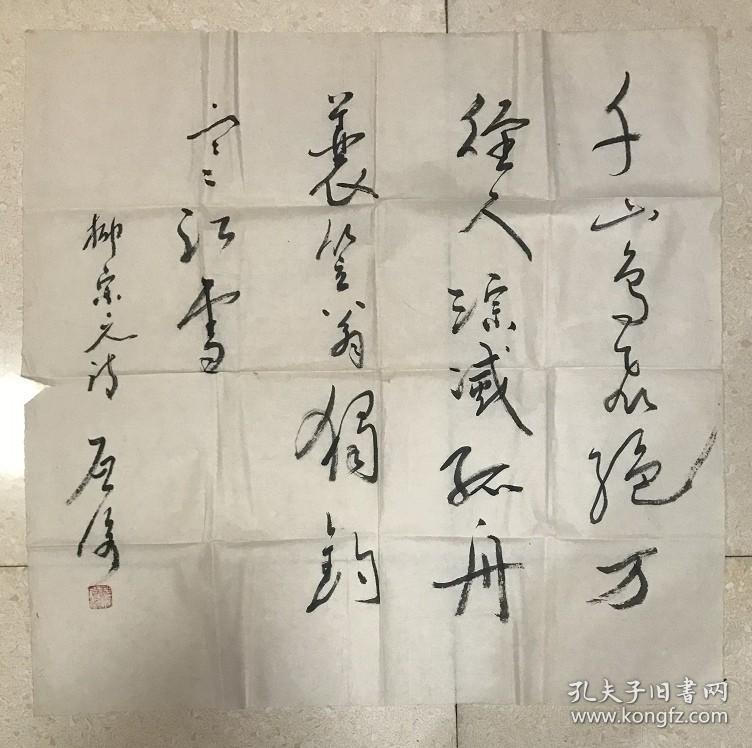 千山鳥飛絕万
徑人踪滅孤舟
蓑笠翁獨釣
寒江雪
柳宗元诗
孔夫子旧書网
www.kongfz.com